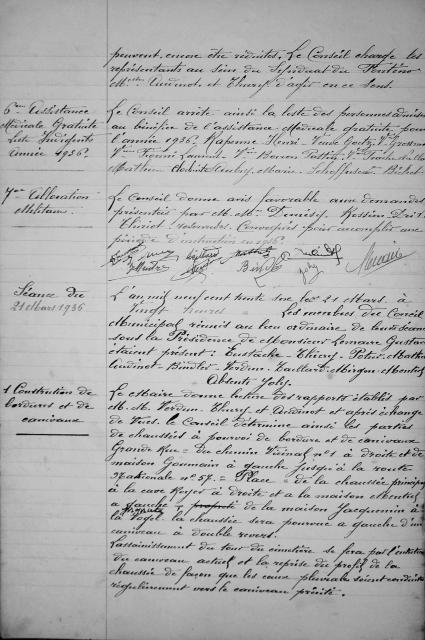 peuvent encore être réduites. Le Conseil charge les
représentants au sein du Syndicat du
MM. Audinot et Thiery d'agir en ce sens.
6° Assistance
Médicale Gratuite
Liste Indigents
Année 1936.
Le Conseil arrête ainsi la liste des personnes admises
au bénéfice de l'assistance Médicale gratuite pour
l'année 1936. Henri - Veuve
Laurent - Vve
Mathieu Marie -
7° Allocation
Militaire.
Le Conseil donne avis favorable aux demandes
présentées par M.M.
Thiriot, réservistes convoqués pour accomplir une
période d'instruction en 1936.
Lemaire
Séance du
21 Mars 1936
L'an mil neuf cent trente six le 21 Mars à
vingt heures Les membres du Conseil
Municipal réunis au lieu ordinaire de leurs séances
sous la Présidence de Monsieur Lemaire Gustave
étaient présent : Eustache - Thiery - Potier - Mathieu
Audinot - Bindler - Verdun - Gaillard - Mirgon - Mentrel
Absent : Joly.
1 Construction de
bordures et de
caniveaux
Le Maire donne lecture des rapports établis par
M.M. Verdun - Thiery et Audinot et après échange
de vues, le Conseil détermine ainsi les parties
de chaussées à pourvoir de bordure et de caniveaux
Grande Rue = du chemin Vicinal n° 1 à droite et de
maison à gauche jusqu'à la route
Nationale n° 57. = Place = de la chaussée principale
à la cave à droite et a la maison Mentrel
a gauche, propriété de la maison Jacquemin à
la Vogel. la chaussée sera pourvue a gauche d'un
caniveau à double revers.
L'assainissement du tour du cimetière se fera par
du caniveau actuel et la reprise du profil de la
chaussée de façon que les eaux pluviales soient conduites
régulièrement vers le caniveau précité.